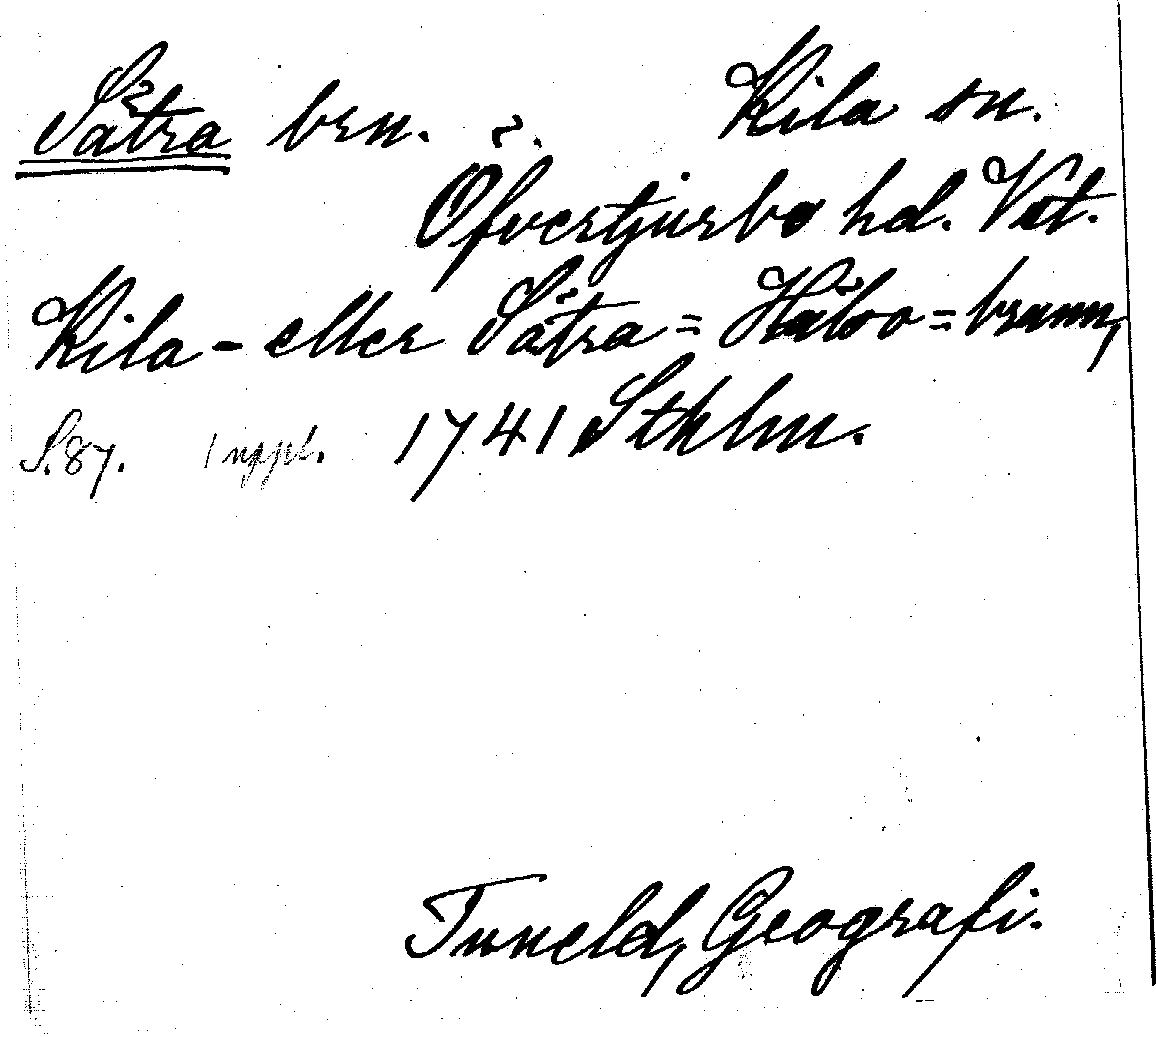 Sätra brn. ?. Kila sn.
Öfvertjurbo hd. Vst.
Kila - eller Sätra = Hälso = brunn,
S. 87. 1 uppl. 1741 Sthlm.
Tuneld, Geografi.